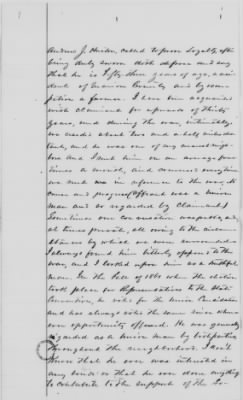 Andrew J. Hinton, called to prove Loyalty, after
being duly sworn doth depose and say
that he is Fifty three years of age, a resi-
dent of Marion County and by occu-
pation a farmer. I have been acquainted
with claimant for upwards of thirty
years, and during the war, intimately.
we resided about two and a half miles dis-
tant, and he was one of my nearest neigh-
bors and I met him on an average four
times a month, and conversed every time
we met in reference to the war, its
cause and progress, (Affiant was a Union
man and so regarded by Claimant)
Sometimes our conversation was public, and,
at times private, all owing to the circum-
stances by which we were surrounded
I always found him bitterly opposed to the
war, and I looked upon him as a truthful
man. In the fall of 1861 when the election
took place for Representatives to the State
Convention, he voted for the Union Candidates
and has always voted the same since when-
ever opportunity offered. He was generally
regarded as a Union man by both parties
throughout the neighborhood. I don't
know that he ever was interested in
any business or that he ever done anything
to contribute to the support of the So-